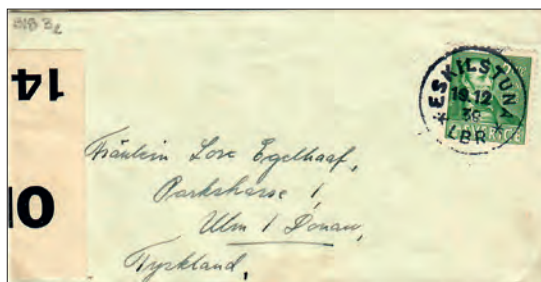 14
10
ESKILSTUNA
19.12
39
* LBR *
SVERIGE
Fräulein Lore Egelhaaf,
Parkstrasse 1,
Ulm / Donau,
Tyskland,